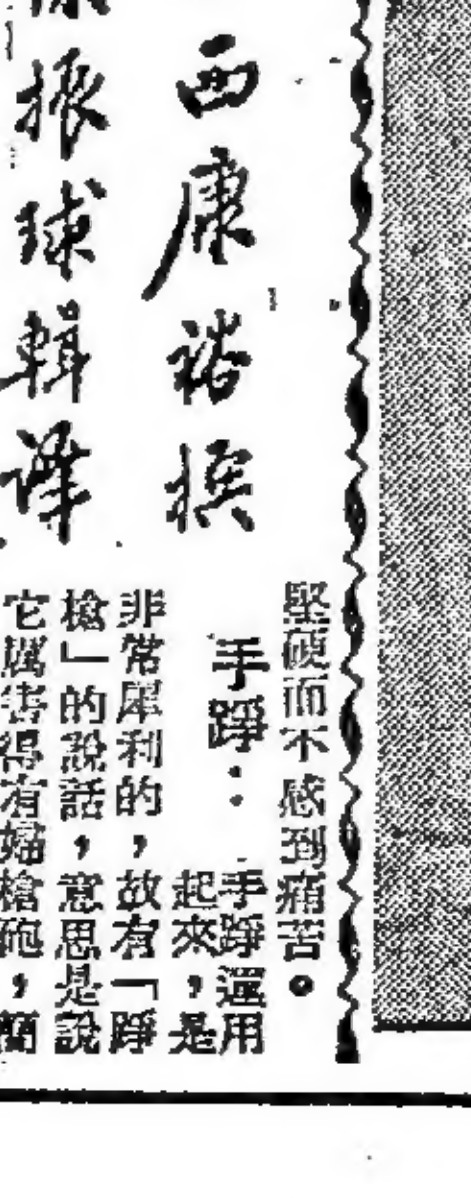 西康裕撰
振球輯譯
堅硬而不感到痛苦。
手踭：
手踭運用
起來，是
非常犀利的，故有「踭
槍」的說話，意思是說
它厲害得有如槍砲，簡